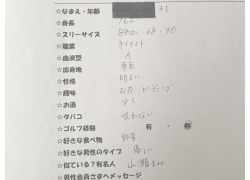 ☆なまえ・年齢 31
☆身長 162
☆スリーサイズ 88(D)・68・90
☆職業
☆血液型 A
☆出身地 東京
☆性格 明るい
☆趣味 お花・ガーデニング
☆お酒 少し
☆タバコ 吸わない
☆ゴルフ経験 有・無
☆好きな食べ物 野菜
☆好きな男性のタイプ 優しい
☆似ている?有名人
☆男性会員さまへメッセージ